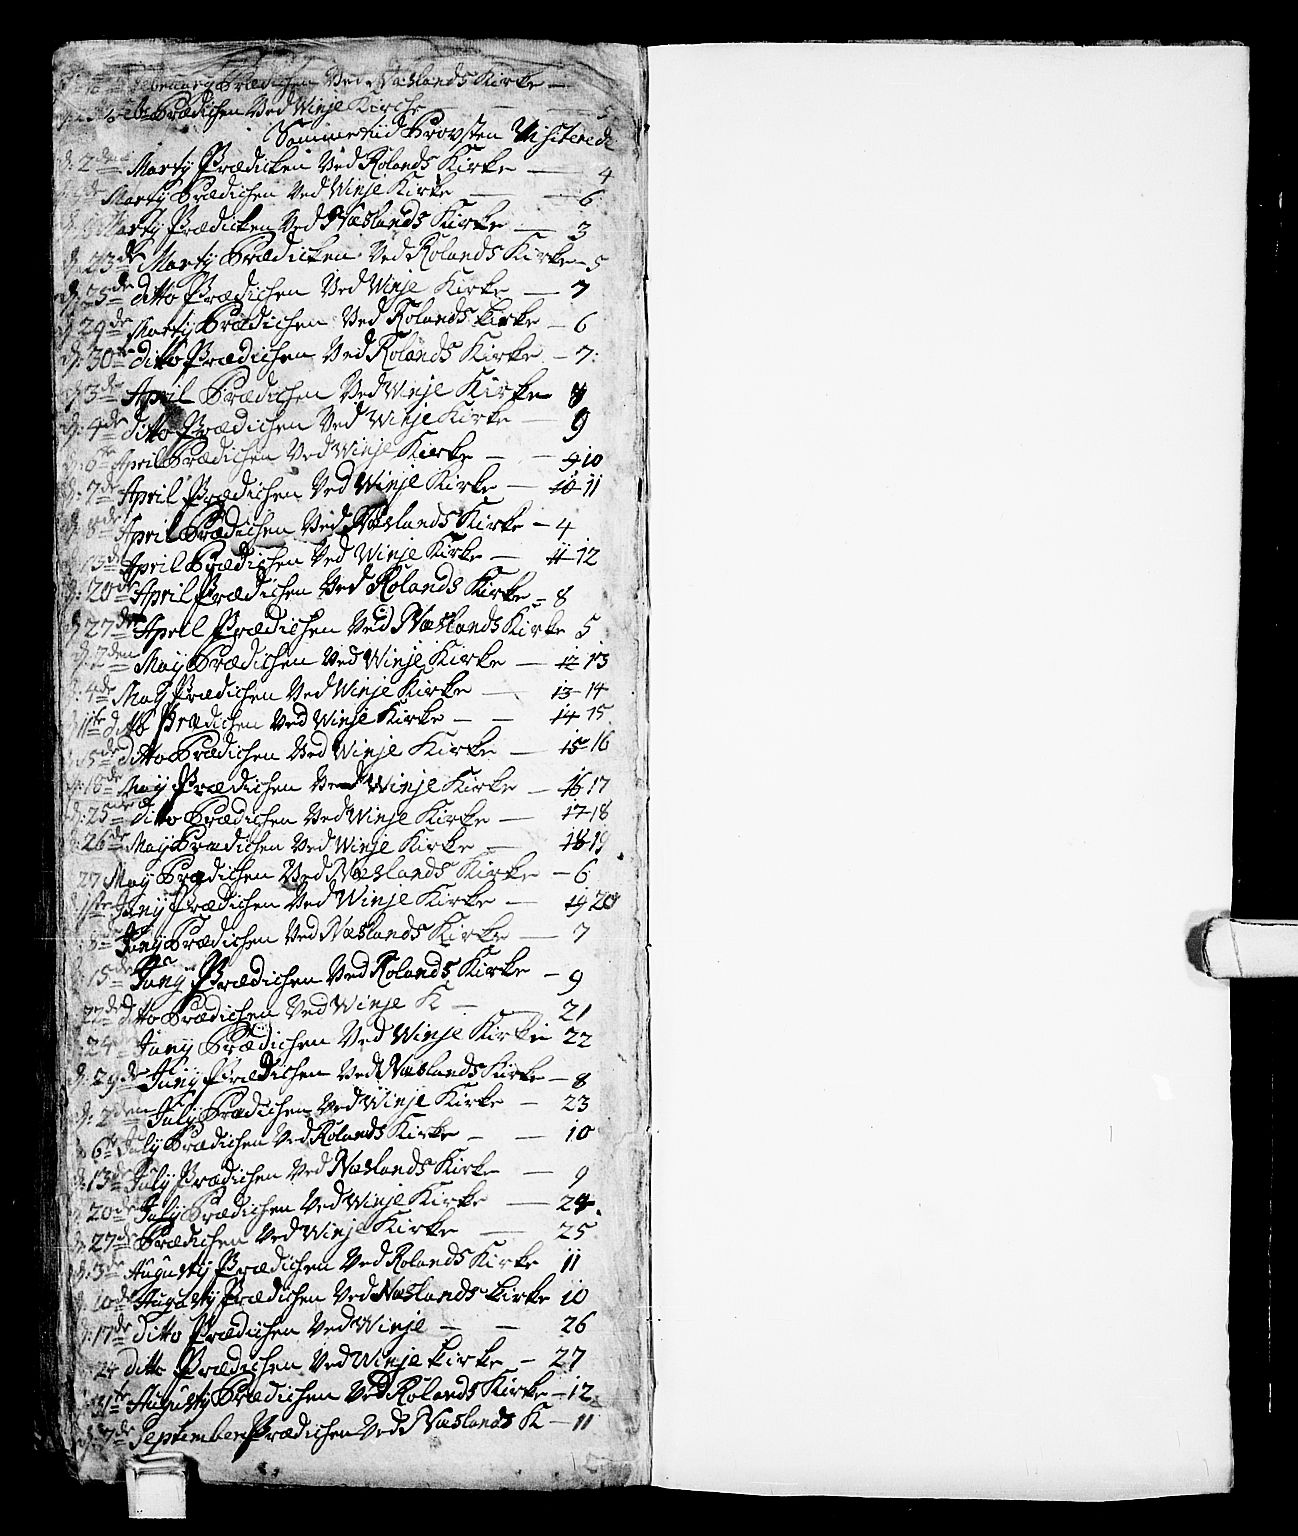 Februarij Prædichen Ved Næslands Kirke —
Prædichen Ved Winje Kirche — — 5
Sammetiid Provsten Visiterede
d: 2den Martij Prædicken Ved Rolands Kirke — 4
Martij Prædichen Ved Winje Kirke — — 6
Martij Prædicken Ved Næslands Kirke — 3
d: 23de Martij Prædicken Ved Rolands Kirke – 5
d: 25de ditto Prædichen Ved Winje Kirke — 7
d: 29de Martij Prædichen Ved Rolands Kirke – 6
d: 30te ditto Prædichen Ved Rolands Kirke – 7:
d: 3de April Prædichen Ved Winje Kirke 8
d: 4de ditto Prædichen Ved Winje Kirke — 9
d: 6te April Prædichen Ved Winje Kirke — – 9 10
d: 7de April Prædichen Ved Winje Kirke — 10 11
d: 8de April Prædichen Ved Næslands Kirke – 4
d: 13de April Prædichen Ved Winje Kirke — 11 12
d: 20de April Prædichen Ved Rolands Kirke – 8
d: 27de April Prædichen Ved Næslands Kirke 5
d: 2den May Prædichen Ved Winje Kirke — 12 13
d: 4de May Prædichen Ved Winje Kirke — 13 14
d: 11te ditto Prædichen Ved Winje Kirke – — 14 15
d: 15de ditto Prædichen Ved Winje Kirke — 15 16
d: 18de May Prædichen Ved Winje Kirke — 16 17
d: 25de ditto Prædichen Ved Winje Kirke — 17 18
d: 26de May Prædichen Ved Winje Kirke — 18 19
27 May Prædichen Ved Næslands Kirke – 6
1ste Junij Prædichen Ved Winje Kirke — 19 20
8de Junij Prædichen Ved Næslands Kirke — 7
d: 15de Junij Prædichen Ved Rolands Kirke – 9
22de ditto Prædichen Ved Winje K — 21
24de Junij Prædichen Ved Winje Kirke 22
d: 29de Junij Prædichen Ved Næslands Kirke – 8
d: 2den July Prædichen Ved Winje Kirke – 23
6te July Prædichen Ved Rolands Kirke – — 10
d: 13de July Prædichen Ved Næslands Kirke — 9
d: 20de July Prædichen Ved Winje Kirke — 24
d: 27de Prædichen Ved Winje Kirke — 25
d: 3de Augustij Prædichen Ved Rolands Kirke 11
d: 10de Augustij Prædichen Ved Næslands Kirke 10
d: 17de ditto Prædichen Ved Winje — — 26
24 ditto Prædichen Ved Winje Kirke – 27
31te Augustij Prædichen Ved Rolands Kirke – 12
d: 7de September Prædichen Ved Næslands K – 11